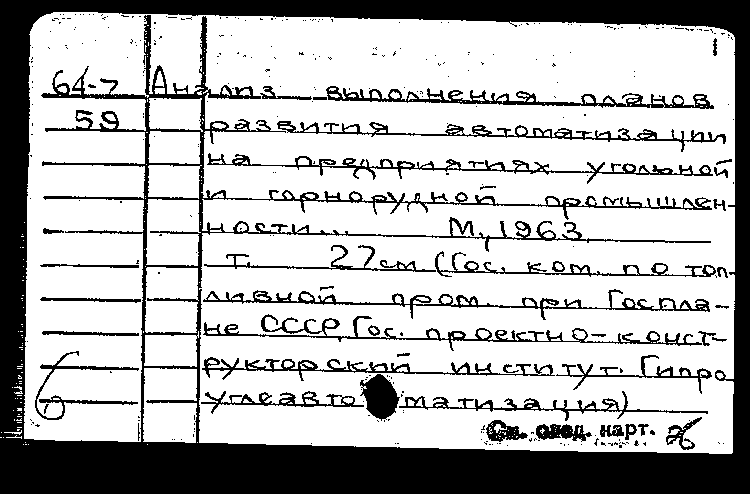 1
64-7 Анализ выполнения планов
59 развития автоматизации
на предприятиях угольной
и горнорудной промышлен-
ности... М., 1963.
т. 27 см (Гос. ком. по топ-
ливной пром. при Госпла-
не СССР, Гос. проектно-конст-
рукторский институт. Гипро
углеавтоматизация)
См. след. карт.